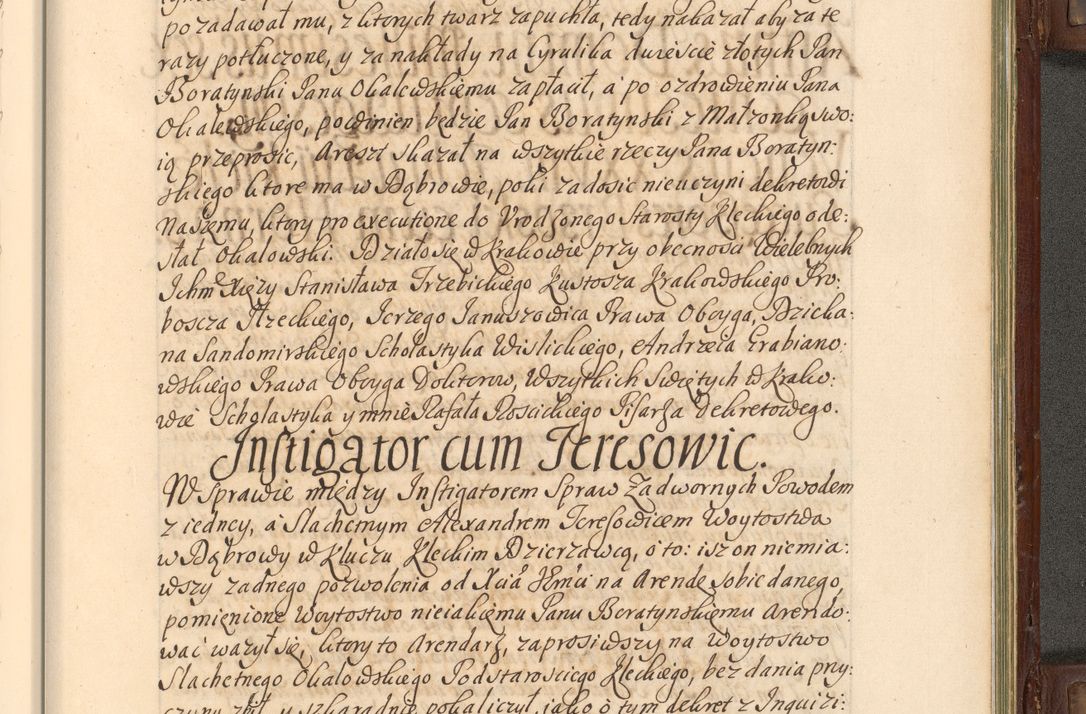 pozadawał mu, z ktorych twarz zapuchła, tedy nakazał aby za te
razy potłuczone, y za nakłady na Cyrulika dwieście złotych Pan
Boratynski Panu Okalewskiemu zapłacił, a po ozdrowieniu Pana
Okalewskiego, powinien będzie Pan Boratynski z Małzonką swo:
ią przeprosic, Areszt skazał na wszytkie rzeczy Pana Boratyn:
skiego ktore ma w Dąbrowie, poki zadosic nieuczyni dekretowi
Naszemu, ktory pro executione do Vrodzonego Starosty Kleckiego ode:
słał Okalowski. Działo się w Krakowie przy obecnosci Wielebnych
Ichm Xięzy Stanisława Trzebickiego Kustosza Krakowskiego Pro:
boscza Rzeckiego, Jerzego Januszowica Prawa Oboyga, Dzieka:
na Sandomirskiego Scholastyka Wislickiego, Andrzeia Grabiano:
wskiego Prawa Oboyga Doktorow, Wszytkich Swiętych w Krako:
wie Scholastyka y mnie Rafała Roscickiego Pisarza Dekretowego.
Instigator cum Teresowic.
W Sprawie między Instigatorem Spraw Zadwornych Powodem
z iedney, a Slachetnym Alexandrem Teresowicem Woytostwa
w Dąbrowy w Kluczu Kleckim Dzierzawcą, o to: isz on niemia:
wszy zadnego pozwolenia od Xcia Jłmci na Arendę sobie danego,
pomienione Woytostwo nieiakiemu Panu Boratynskiemu Arendo:
wać wazył się, ktory to Arendarz, zaprosiwszy na Woytostwo
Slachetnego Okalowskiego Podstarosciego Kleckiego, bez dania przy:
czyny zbił, y szkaradnie pokaliczył, jako o tym dekret z Inquizi: